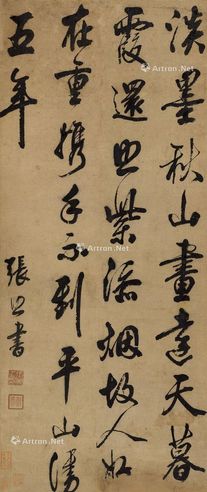 淡墨秋山畫遠天暮
霞還照紫添烟故人好
在重携手不到平山謾
五年
張照書
Artron.Net
Artron.Net
Artron.Net
Artron.Net